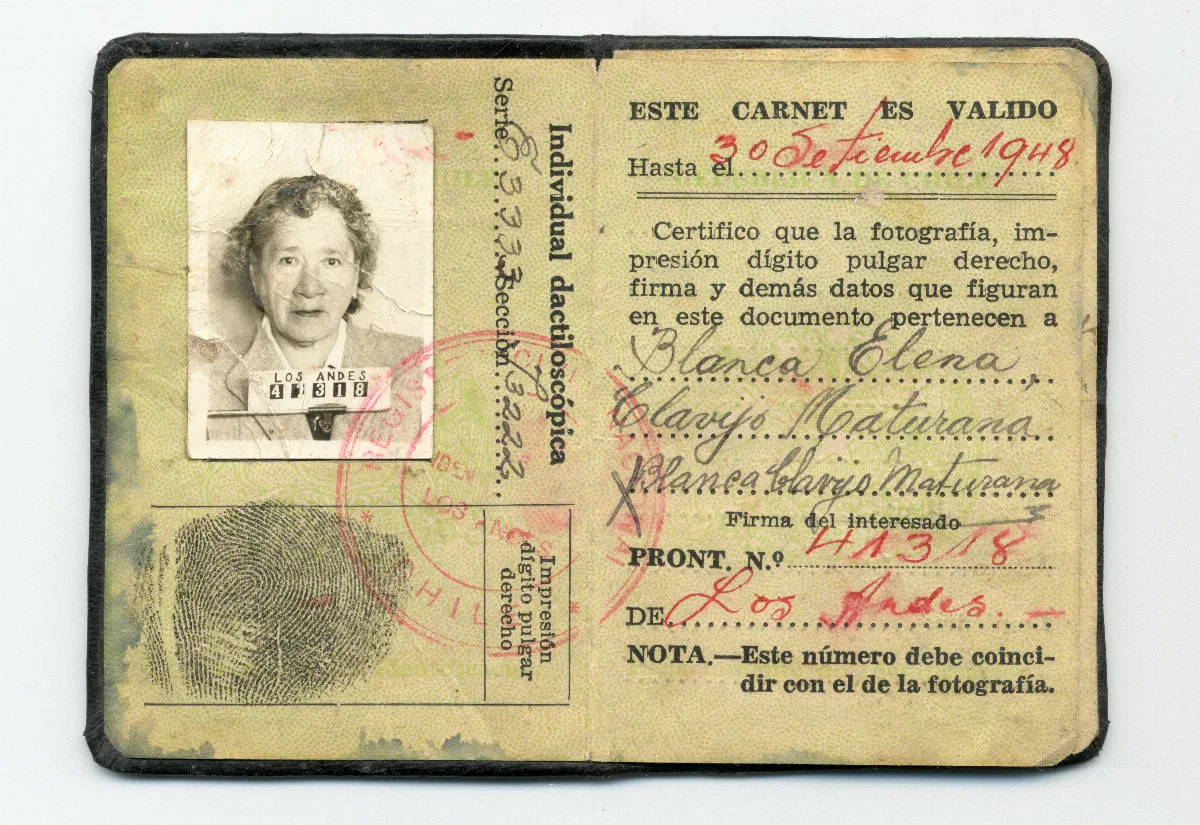 LOS ANDES
41318
Individual dactiloscópica
Serie 63333 Sección 32222
Impresión
dígito pulgar
derecho
CHILE
ESTE CARNET ES VALIDO
Hasta el 30 Setiembre 1948
Certifico que la fotografía, im-
presión dígito pulgar derecho,
firma y demás datos que figuran
en este documento pertenecen a
Blanca Elena,
Clavijo Maturana
X Blanca Clavijo Maturana
Firma del interesado
PRONT. N.º 41318
DE Los Andes.—
NOTA.—Este número debe coinci-
dir con el de la fotografía.